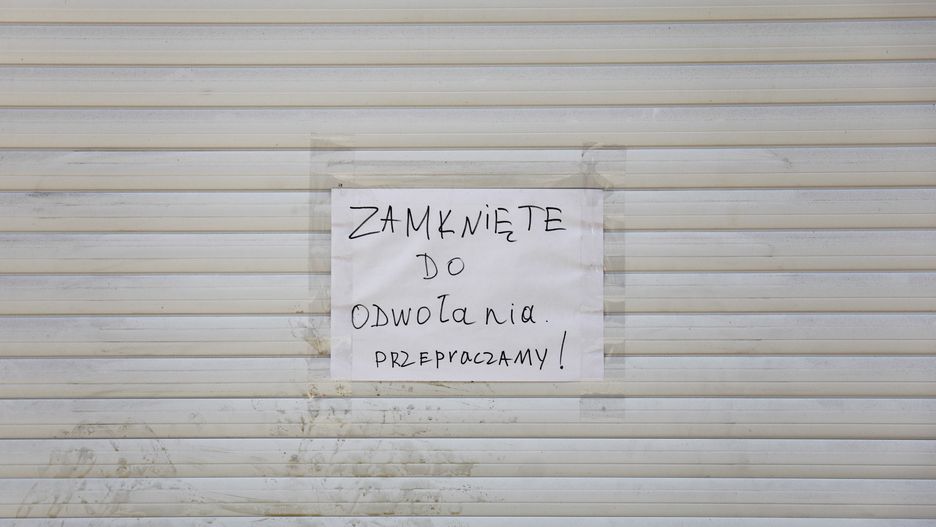 ZAMKNIĘTE
DO
ODWOłania.
PRZEPraCZAMY!